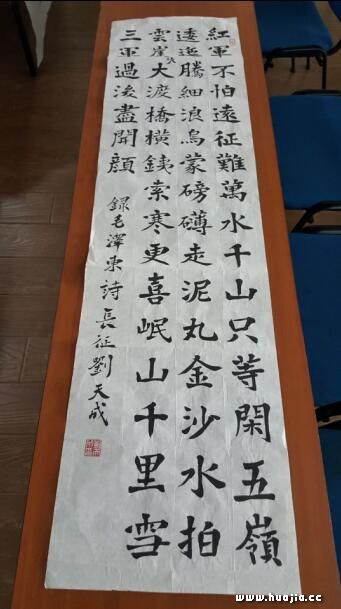 紅軍不怕遠征難萬水千山只等閑五嶺
逶迤騰細浪烏蒙磅礴走泥丸金沙水拍
雲崖大渡橋橫銕索寒更喜岷山千里雪
三軍過後盡開顏
録毛澤東詩長征劉天成
www.huajia.cc